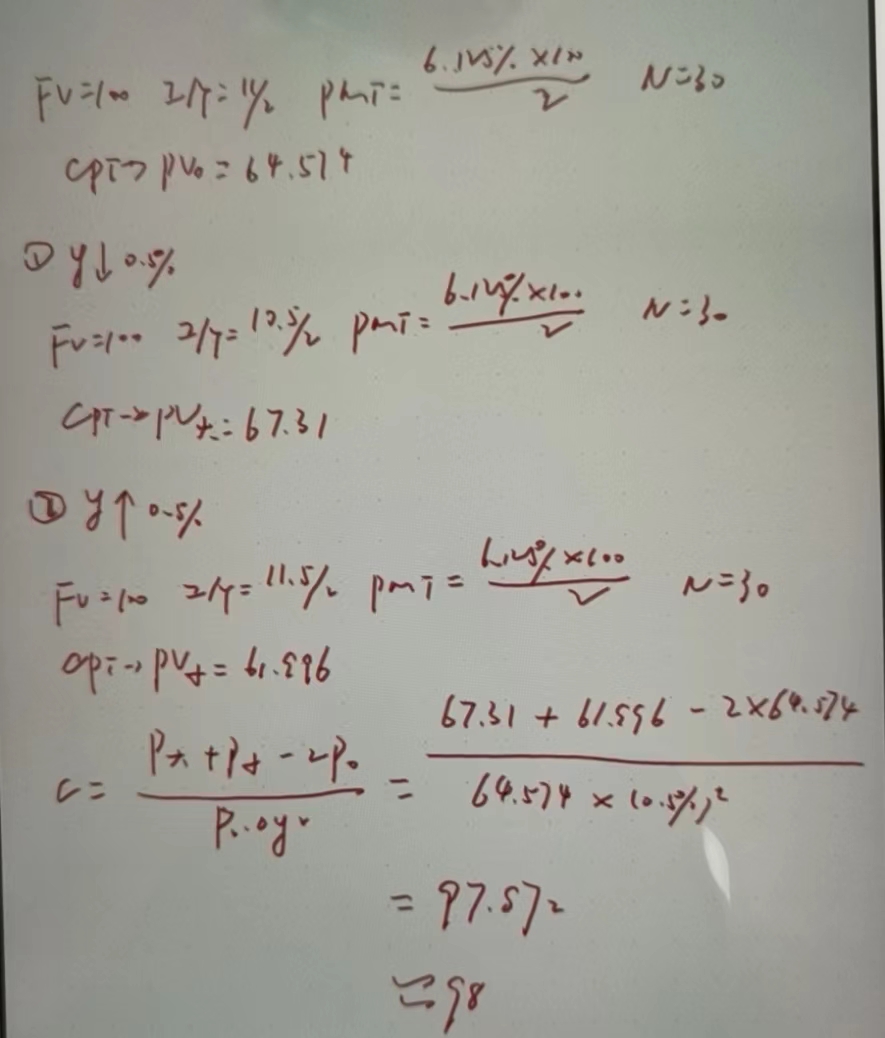 FV=100 I/Y=11/2 PMT= 6.125%×100/2 N=30
CPT→PV₀=64.574
① y↓0.5%
FV=100 I/Y=10.5/2 PMT= 6.125%×100/2 N=30
CPT→PV₊=67.31
② y↑0.5%
FV=100 I/Y=11.5/2 PMT= 6.125%×100/2 N=30
CPT→PV₊=61.996
C= (P₊+P₊-2P₀)/(P₀·Δy²) = (67.31+61.996-2×64.574)/(64.574×(0.5%)²)
=97.572
≈98